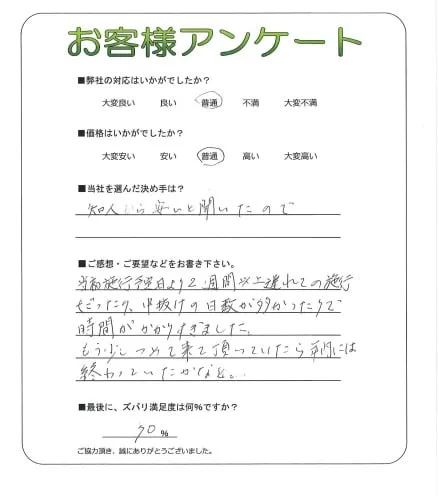 お客様アンケート
■弊社の対応はいかがでしたか?
大変良い 良い 普通 不満 大変不満
■価格はいかがでしたか?
大変安い 安い 普通 高い 大変高い
■当社を選んだ決め手は?
知人から安いと聞いたので
■ご感想・ご要望などをお書き下さい。
当初施行予定日より2週間以上遅れての施行
だったり、中抜けの日数が多かったりで
時間がかかりすぎました。
もう少しつめて来て頂っていたら 年内には
終わっていたかなと。
■最後に、ズバリ満足度は何%ですか?
70 %
ご協力頂き、誠にありがとうございました。